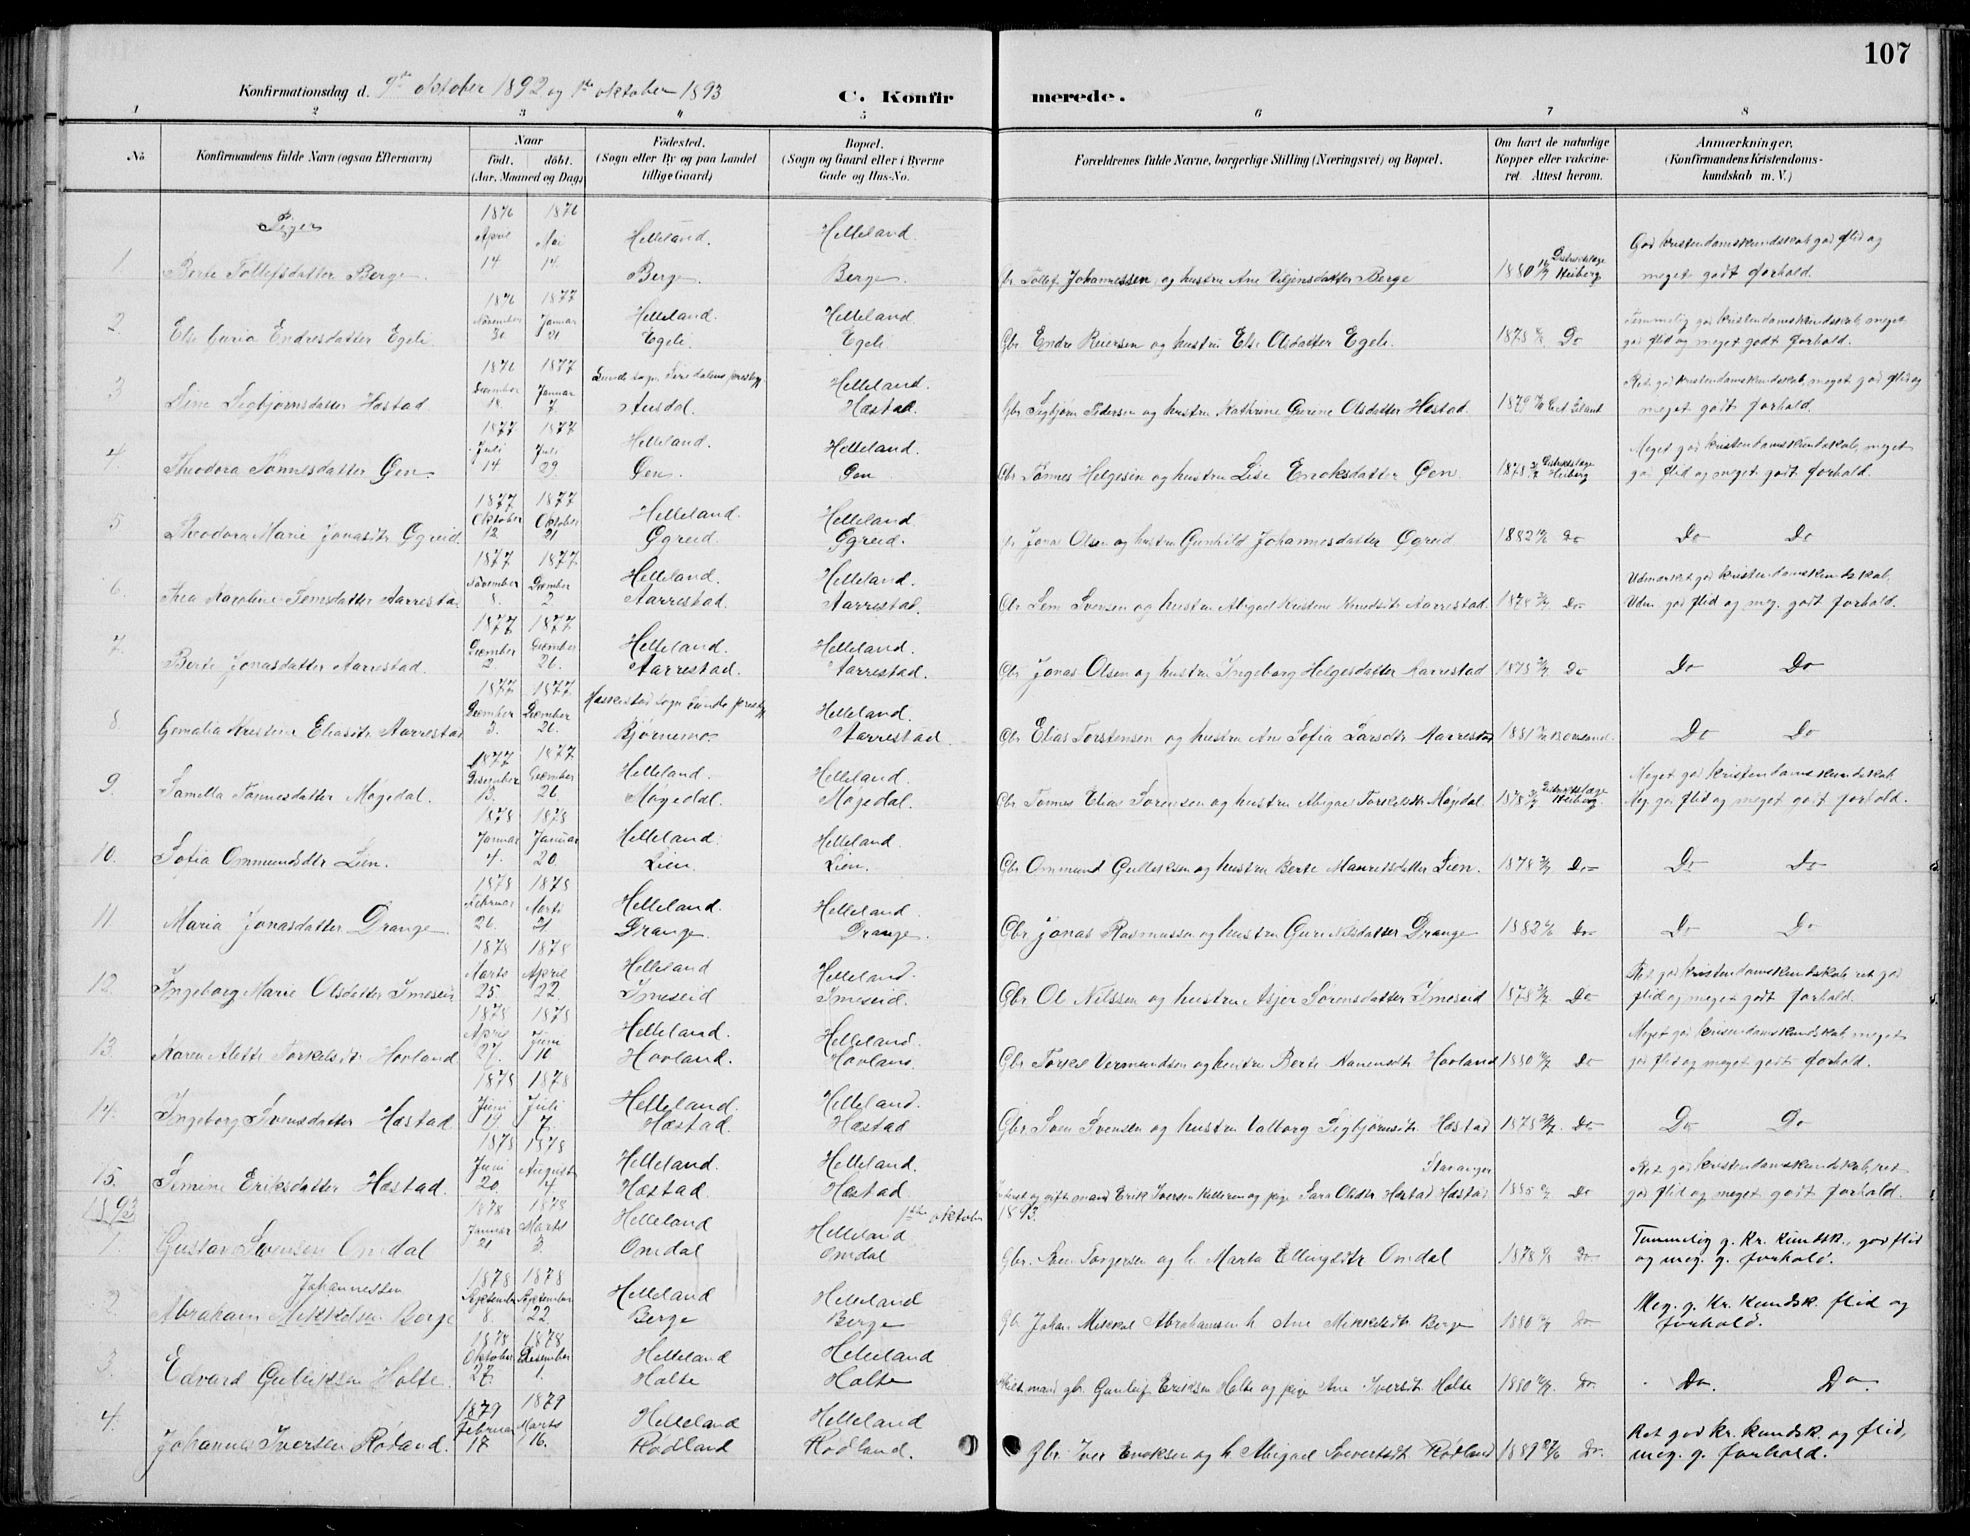 107
Konfirmationsdag d. 9de oktober 1892 og 1ste oktober 1893
C. Konfirmerede.
1 2 3 4 5 6 7 8
No
Konfirmandens fulde Navn (ogsaa Efternavn)
Naar
født. døbt.
(Aar, Maaned og Dag)
Fødested.
(Sogn eller By og paa Landet
tillige Gaard)
Bopæl.
(Sogn og Gaard eller i Byerne
Gade og Hus-No.
Forældrenes fulde Navne, borgerlige Stilling (Næringsvei) og Bopæl.
Om havt de naturlige
Kopper eller vakcine-
ret. Attest herom.
Anmærkninger.
(Konfirmandens Kristendoms-
kundskab m. V.)
Piger
1876 1876
April Mai
1 Berte Tollefsdatter Berge. 14 14. Helleland. Berge. Helleland. Berge. Gbr Tollef Johannessen og hustru Ane Viljensdatter Berge 1880 Distriktslæge Heiberg God kristendomskundskab god flid og
meget godt forhold.
1876 1877
November Januar
2. Else Guria Endresdatter Egeli 30 21 Helleland. Egeli Helleland. Egeli Gbr Endre Reiersen og hustru Else Olsdatter Egeli. 1878 Do Temmelig god kristendomskundskab, meget
god flid og meget godt forhold.
1876 1877
December Januar
3 Sine Sigbjørnsdatter Hæstad 18. 7. Lunds sogn Siredalens præstgj Ausdal. Helleland. Hæstad. Gbr Sigbjørn Pedersen og hustru Kathrine Gurine Olsdatter Hæstad. 1879 Ret god kristendomskundskab, meget god flid og
meget godt forhold.
1877 1877
Juli Juli
4. Theodora Tønnesdatter Øen. 14 29 Helleland. Øen. Helleland. Øen Gbr Tønnes Helgesen og hustru Lise Enoksdatter Øen. 1878 Distriktslæge Heiberg Meget god kristendomskundskab, meget
god flid og meget godt forhold.
1877 1877
Oktober Oktober
5 Theodora Marie Jonasdtr Øgreid. 12 21 Helleland. Øgreid. Helleland. Øgreid. Jonas Olsen og hustru Gunhild Johannesdatter Øgreid 1882 Do Do Do
1877 1877
November December
6. Thea Karoline Semsdatter Aarrestad 8. 2 Helleland. Aarrestad. Helleland. Aarrestad. Gbr Sem Svensen og hustru Abigael Kristine Knudsdtr Aarrestad 1878 Do Udmærket god kristendomskundskab,
Udm. god flid og meg. godt forhold.
1877 1877
December December
7. Berte Jonasdatter Aarrestad. 2 26. Helleland. Aarrestad. Helleland. Aarrestad. Gbr Jonas Olsen og hustru Ingeborg Helgesdatter Aarrestad 1878 Do Do Do
1877 1877
December December
8 Gemalia Kristine Eliasdtr Aarrestad 3. 26. Hæskestad sogn Lunds præstgj Bjørnemo Helleland. Aarrestad. Gbr Elias Torstensen og hustru Ane Sofia Larsdtr Aarrestad 1881 Do Do
1877 1877
December December
9. Samella Tønnesdatter Møgedal. 13. 26 Helleland. Møgedal. Helleland. Møgedal. Gbr Tønnes Elias Sørensen og hustru Abigael Torkelsdtr Møgedal 1878 Distriktslæge Heiberg. Meget god kristendomskundskab
Meg. god flid og meget godt forhold.
1878 1878
Januar Januar
10. Sofia Ommundsdtr Lien. 4. 20. Helleland. Lien. Helleland. Lien. Gbr Ommund Gulleksen og hustru Berte Mauritsdatter Lien. 1878 Do Do Do
1878 1878
Februar Marts
11. Maria Jonasdatter Drange. 26. 31 Helleland. Drange. Helleland. Drange. Gbr Jonas Rasmussen og hustru Guri Nilsdatter Drange 1882 Do Do Do
1878 1878
Marts April
12. Ingeborg Marie Olsdatter Imeseid 25. 22 Helleland Imeseid Helleland. Imeseid. Gbr Ole Nilssen og hustru Asjer Sørensdatter Imeseid 1878 Do Ret god kristendomskundskab, ret god
flid og meget godt forhold.
1878 1878
April Juni
13. Karen Alette Torkelsdtr Hovland 27. 16 Helleland. Hovland. Helleland. Hovland. Gbr Torkel Vermundsen og hustru Berte Hovland 1880 Do Meget god kristendomskundskab, meget
god flid og meget godt forhold.
1878 1878
Juni Juli
14. Ingeborg Svensdatter Hæstad 19. 7. Helleland. Hæstad. Helleland. Hæstad Gbr Sven Svensen og hustru Valborg Sigbjørnsdtr Hæstad 1878 Do Do Do
1878 1878
Juni August
15. Semine Eriksdatter Hæstad. 20. 4 Helleland. Hæstad. Helleland. Hæstad gift mand Erik Iversen og pige Sara Olsdtr Hæstad Hæstad Stavanger 1885 Do Ret god kristendomskundskab, ret
god flid og meget godt forhold.
1893 1ste oktober 1893.
1878 1878
Januar Marts
1. Gustav Svensen Omdal 21 3. Helleland Omdal Helleland Omdal Gbr. Sven Torgersen og h. Marta Ellingsdtr Omdal 1878 Do Temmelig g. Kr. Kundsk., god flid
og meg. g. forhold.
1878 1878
September September
2. Abraham Mikkelsen Johannessen Berge 8. 22 Helleland Berge Helleland Berge Gbr Johan Mikkal Abrahamsen h. Ane Mikkelsdtr Berge 1880 Do Meg. g. Kr. Kundsk. flid og
forhold.
1878 1878
Oktober December
3. Edvard Gulleiksen Holte. 27. 1. Helleland Holte Helleland Holte mand gbr. Gunleif Eriksen Holte og pige Ane Iversdtr Holte 1880 Do. Do. Do.
1879 1879
Februar Marts
4. Johannes Iversen Rødland. 17. 16. Helleland Rødland Helleland Rødland. Gbr. Iver Enoksen og h. Abigael Sivertsdtr Rødland 1889 Do. Ret god kr. kundsk. og flid,
meg. g. forhold.